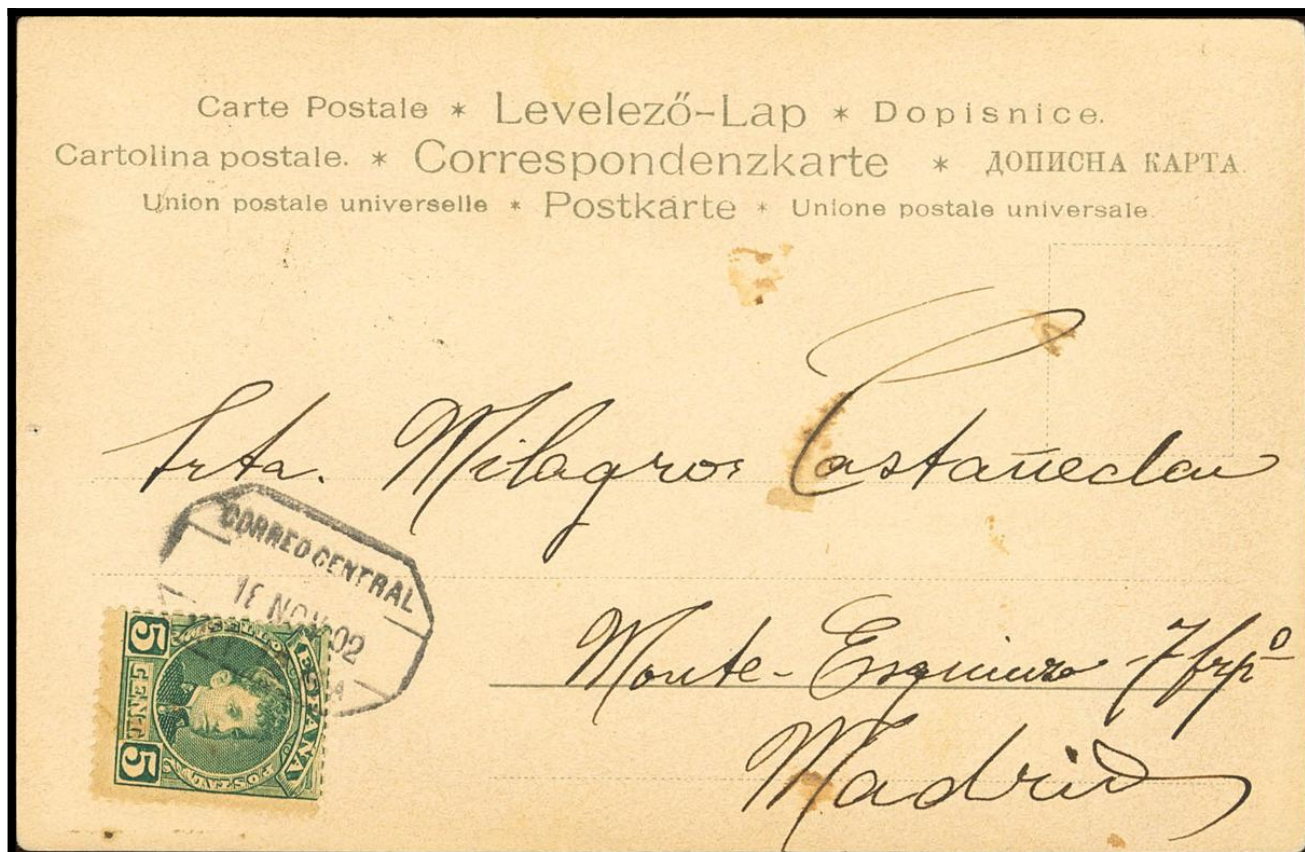 Carte Postale * Levelező-Lap * Dopisnice.
Cartolina postale. * Correspondenzkarte * ДОПИСНА КАРТА.
Union postale universelle * Postkarte * Unione postale universale.
Srta. Milagros Castañeda
CORREO CENTRAL
NOV 02
Monte-Esquinza 7
Madrid
5 CENTS 5
ESPAÑA